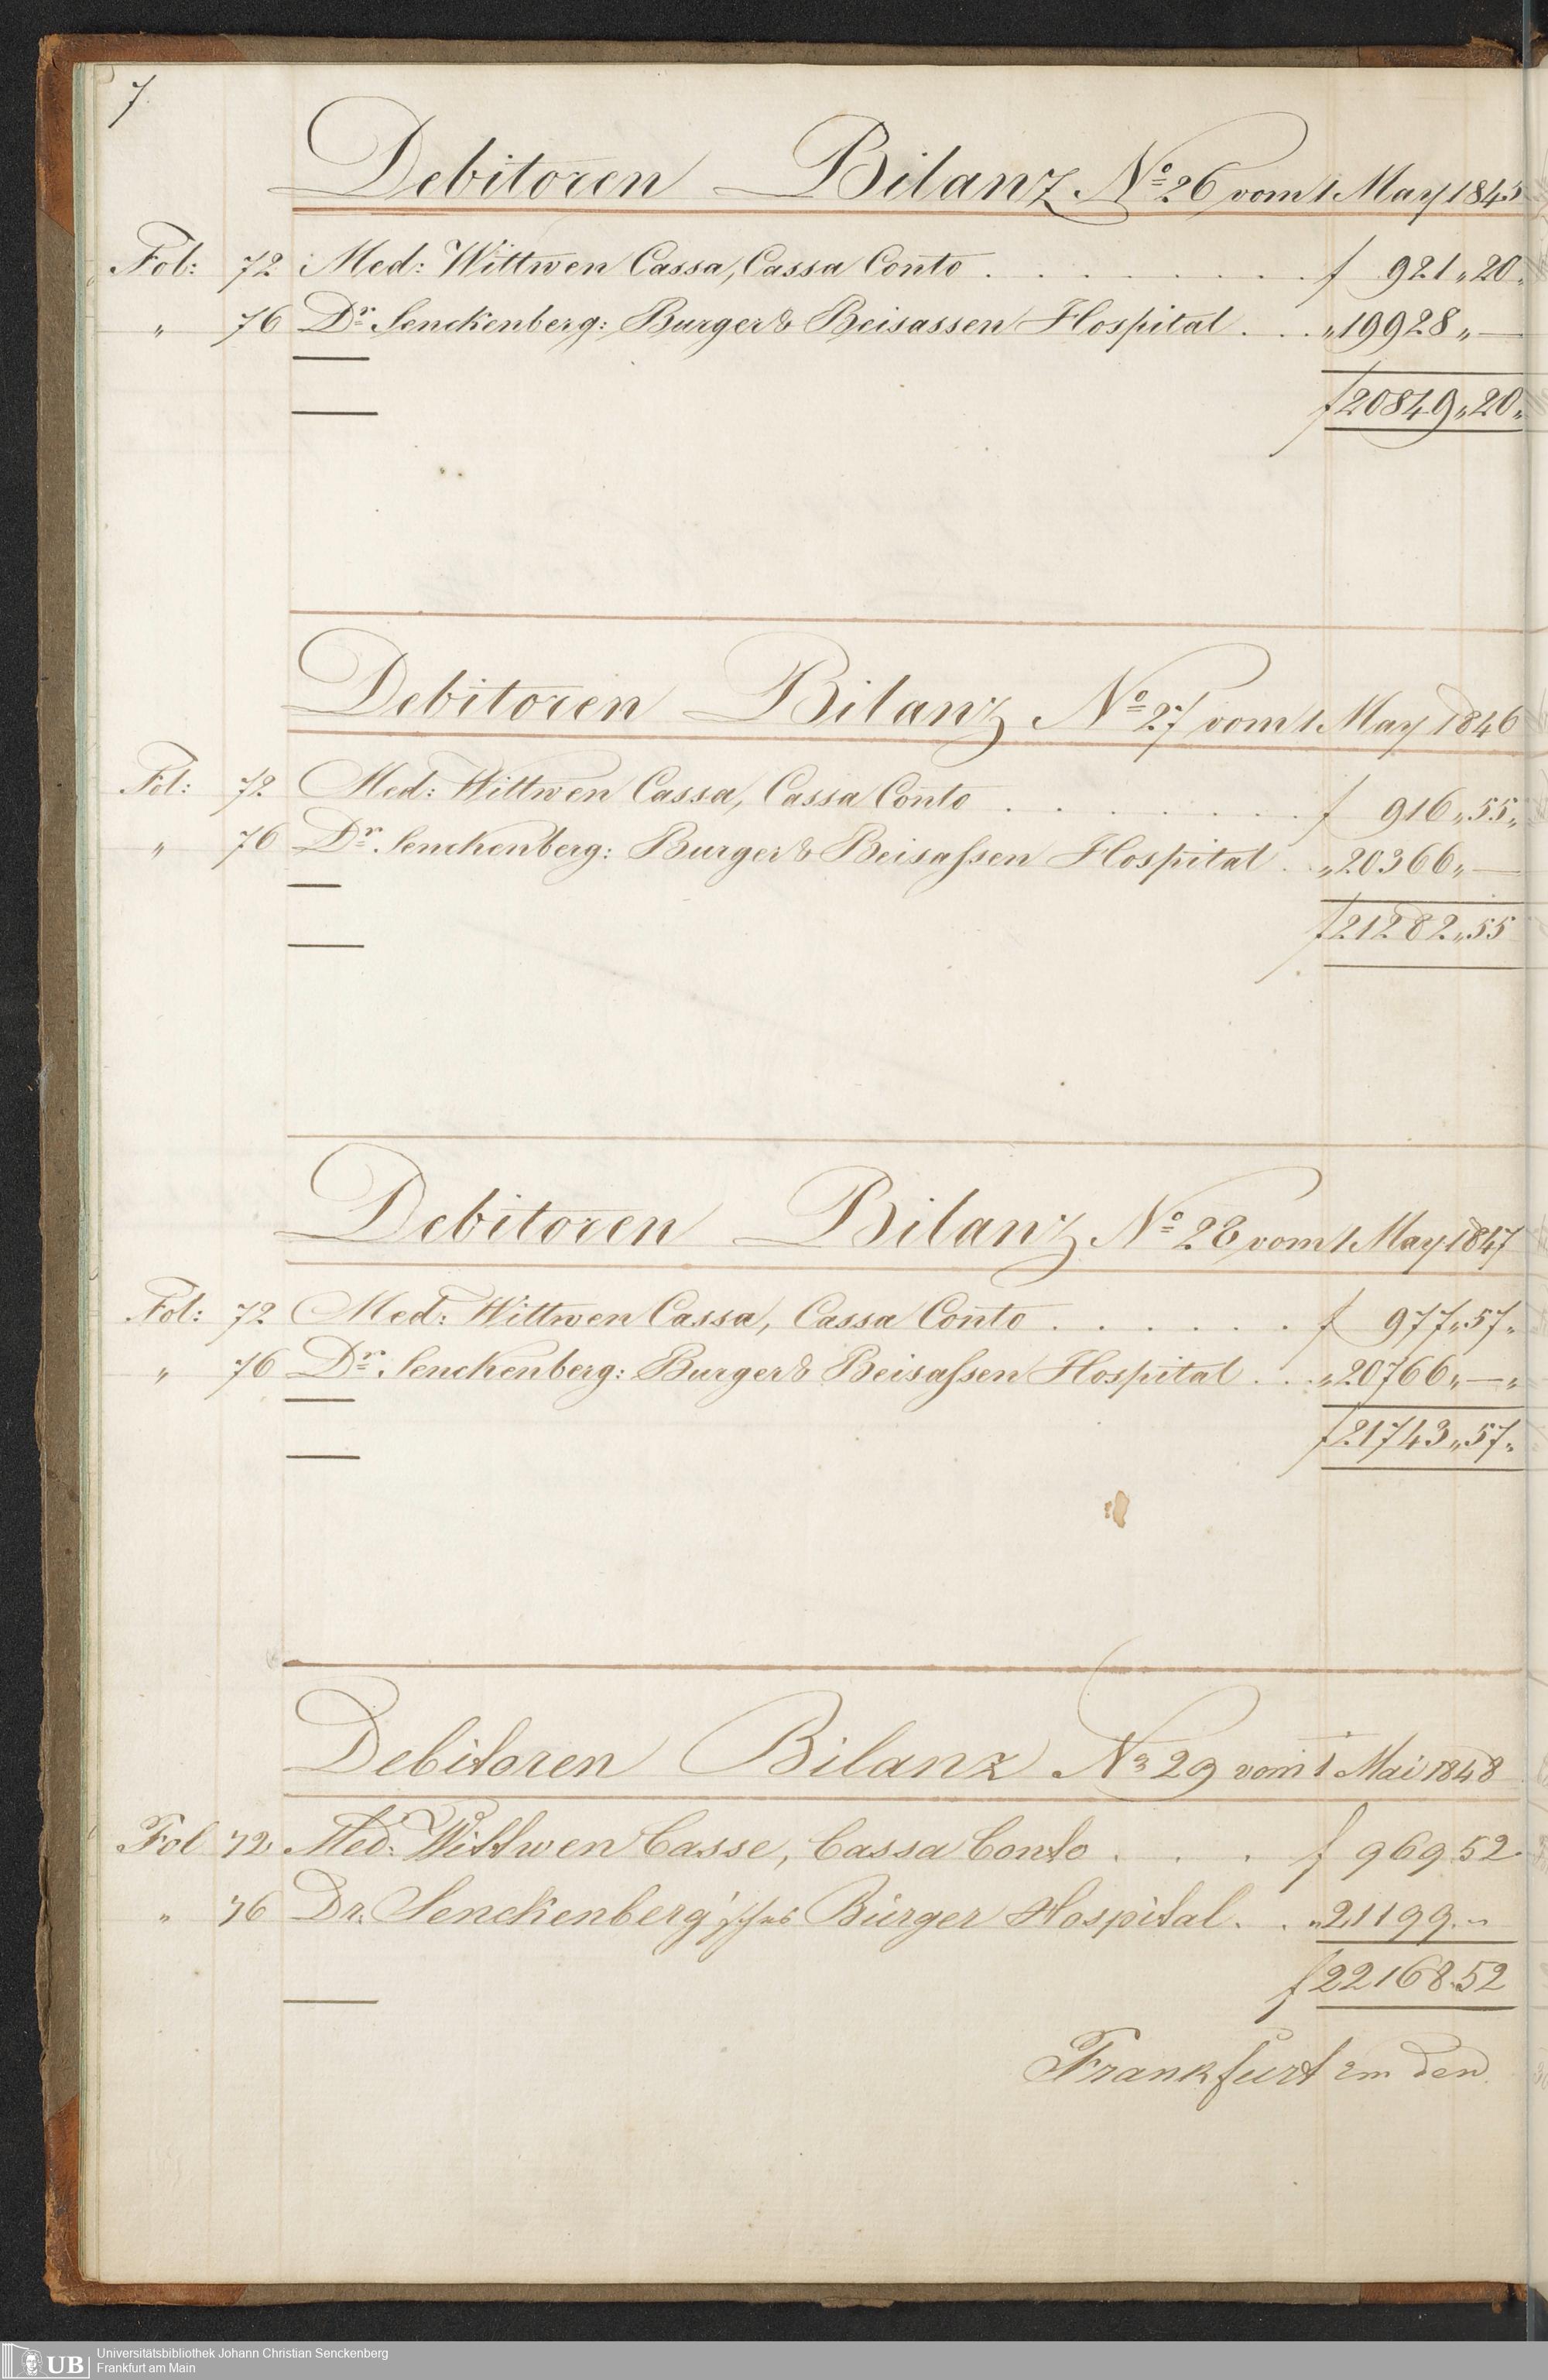 7.
Debitoren Bilanz Nº 26 vom 1 May 1845
Fol: 72 Med: Wittwen Cassa, Cassa Conto . . . . . . . . . f 921 „ 20 „
„ 76 Dr. Senckenberg: Burger & Beisassen Hospital . . . „ 19928 „ —
f 20849 „ 20 „
Debitoren Bilanz Nº 27 vom 1 May 1846
Fol: 72 Med: Wittwen Cassa, Cassa Conto . . . . . . . . f 916 „ 55 „
„ 76 Dr. Senckenberg: Burger & Beisaſsen Hospital . . „ 20366 „ —
f 21282 „ 55
Debitoren Bilanz Nº 28 vom 1 May 1847
Fol: 72 Med: Wittwen Cassa, Cassa Conto . . . . . . . f 977 „ 57 „
„ 76 Dr. Senckenberg: Burger & Beisaſsen Hospital . . . „ 20766 „ — „
f 21743 „ 57 „
Debitoren Bilanz No 29 vom 1 Mai 1848
Fol 72 Med: Wittwen Casse, Cassa Conto . . . f 969.52.
„ 76 Dr. Senckenberg'sches Bürger Hospital . . „ 21199. „
f 22168.52
Frankfurt am den
UB Universitätsbibliothek Johann Christian Senckenberg
Frankfurt am Main